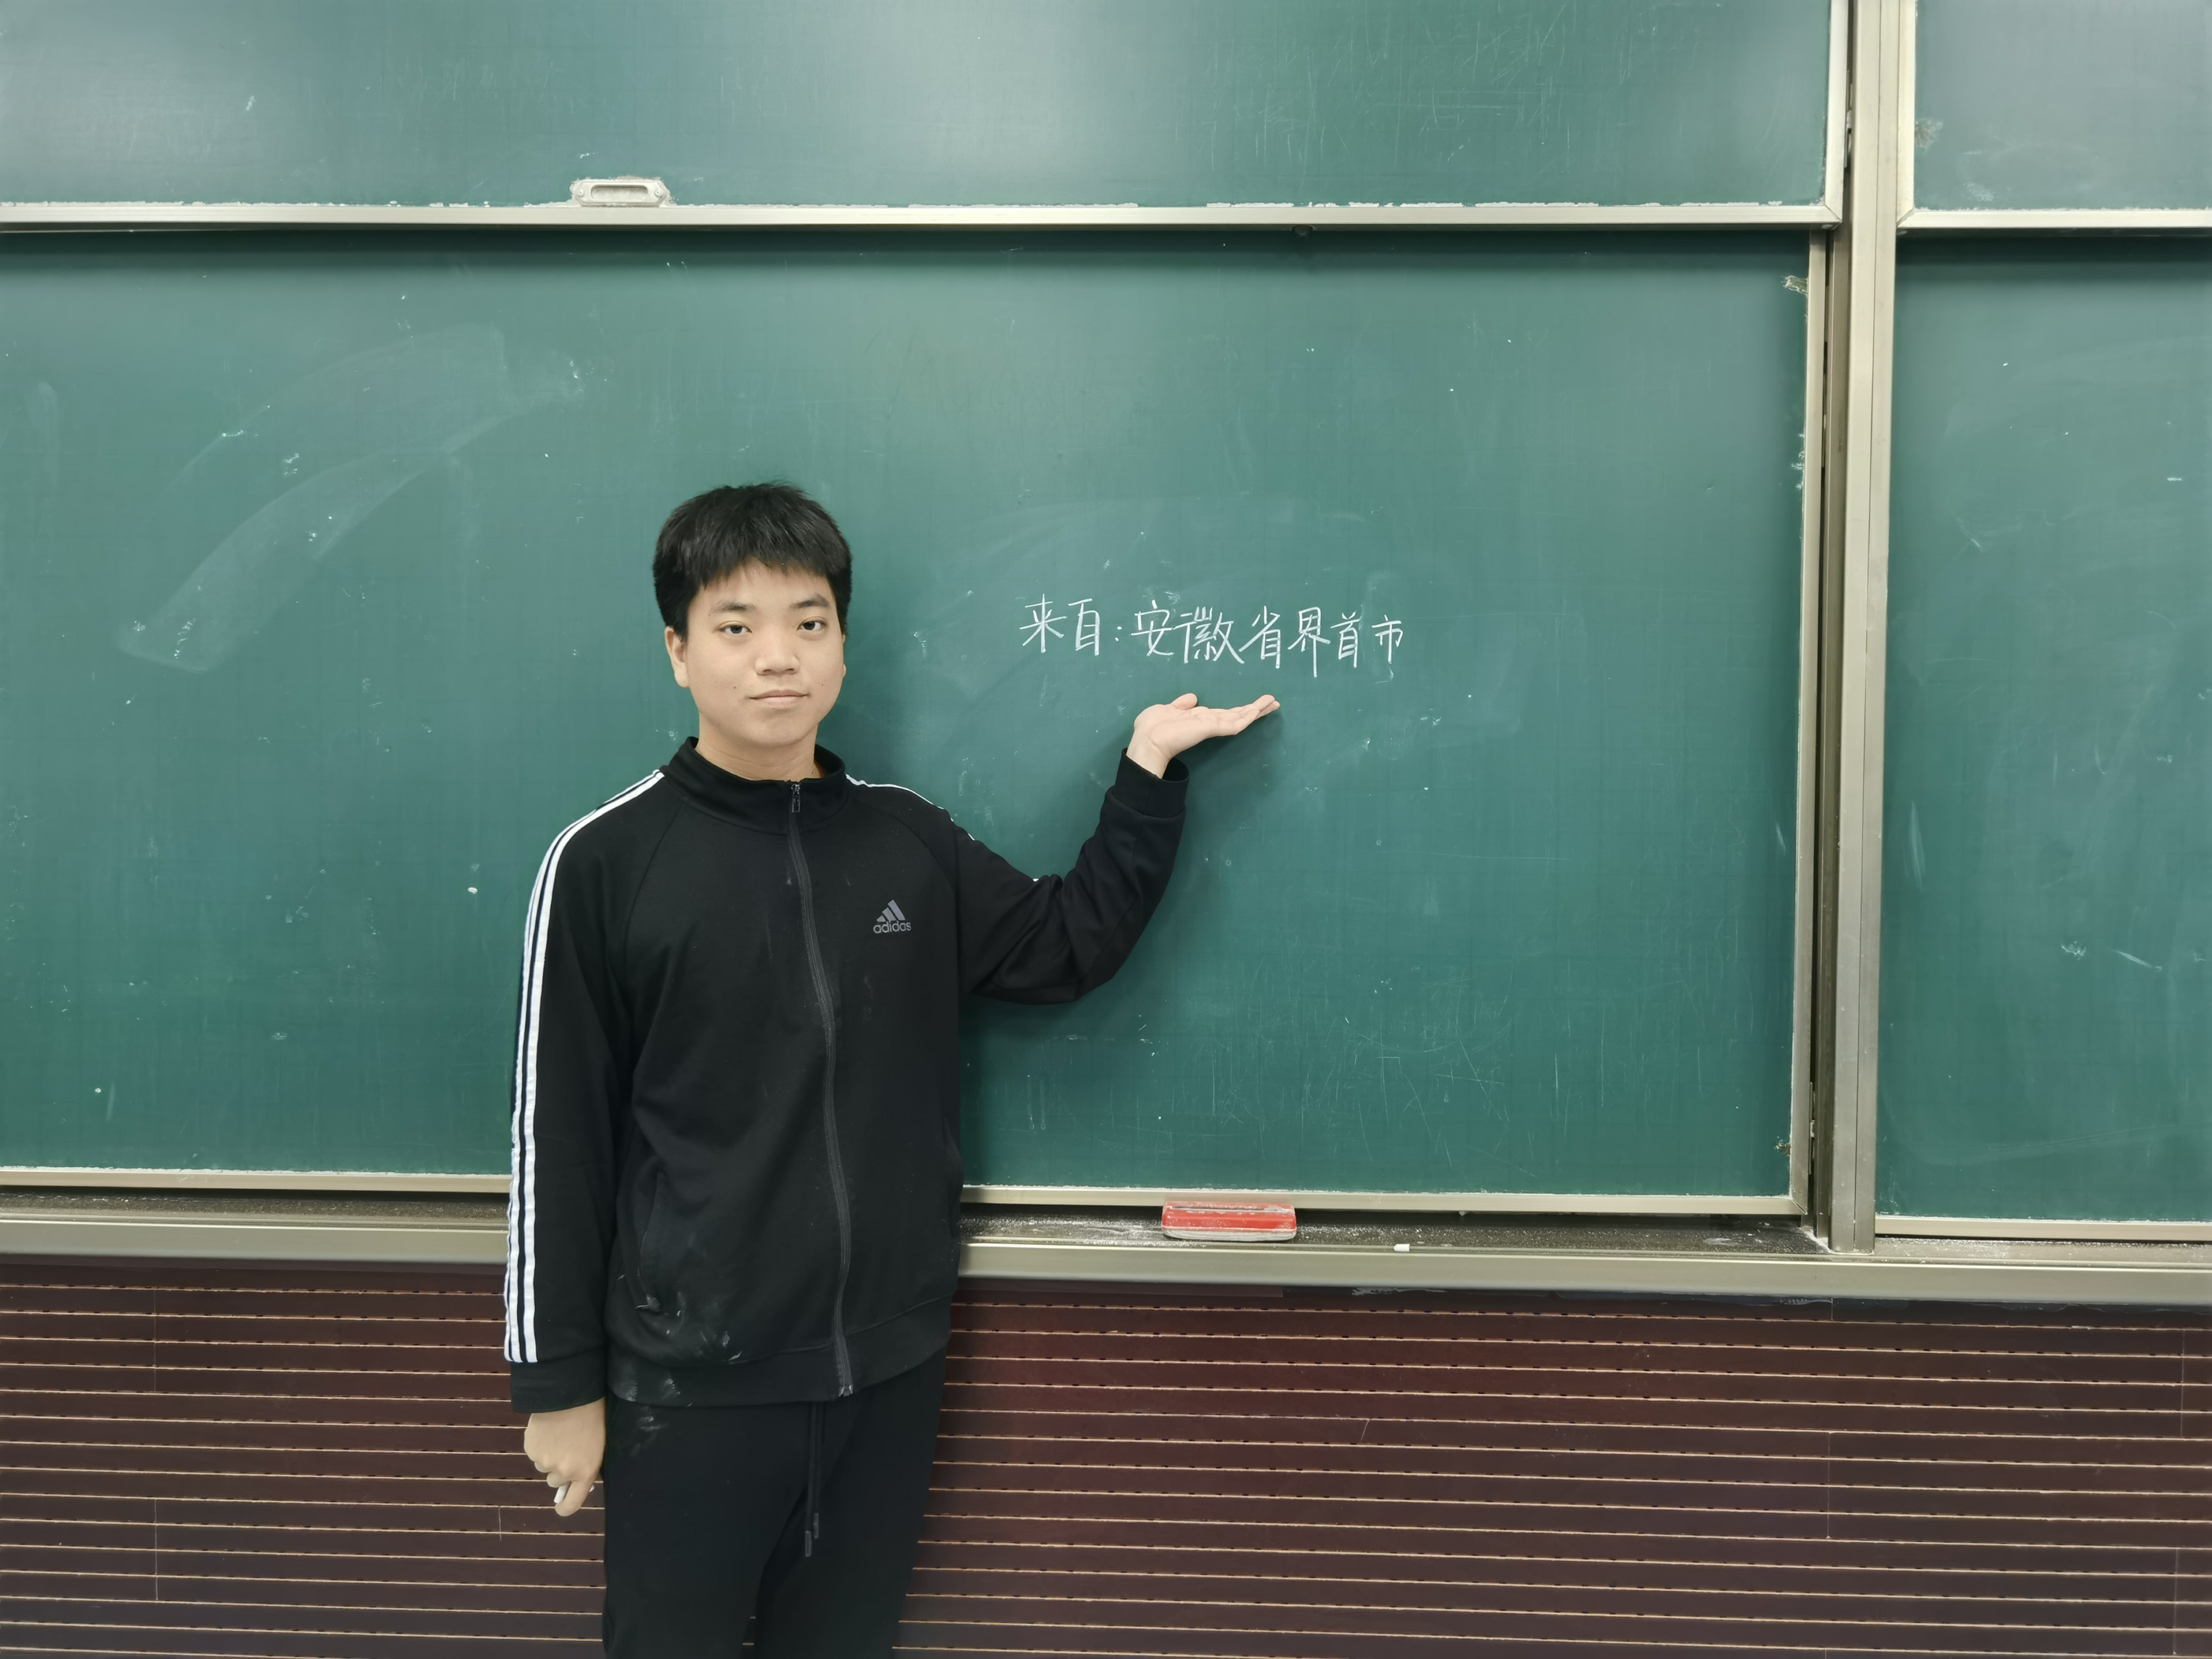 来自：安徽省界首市
adidas